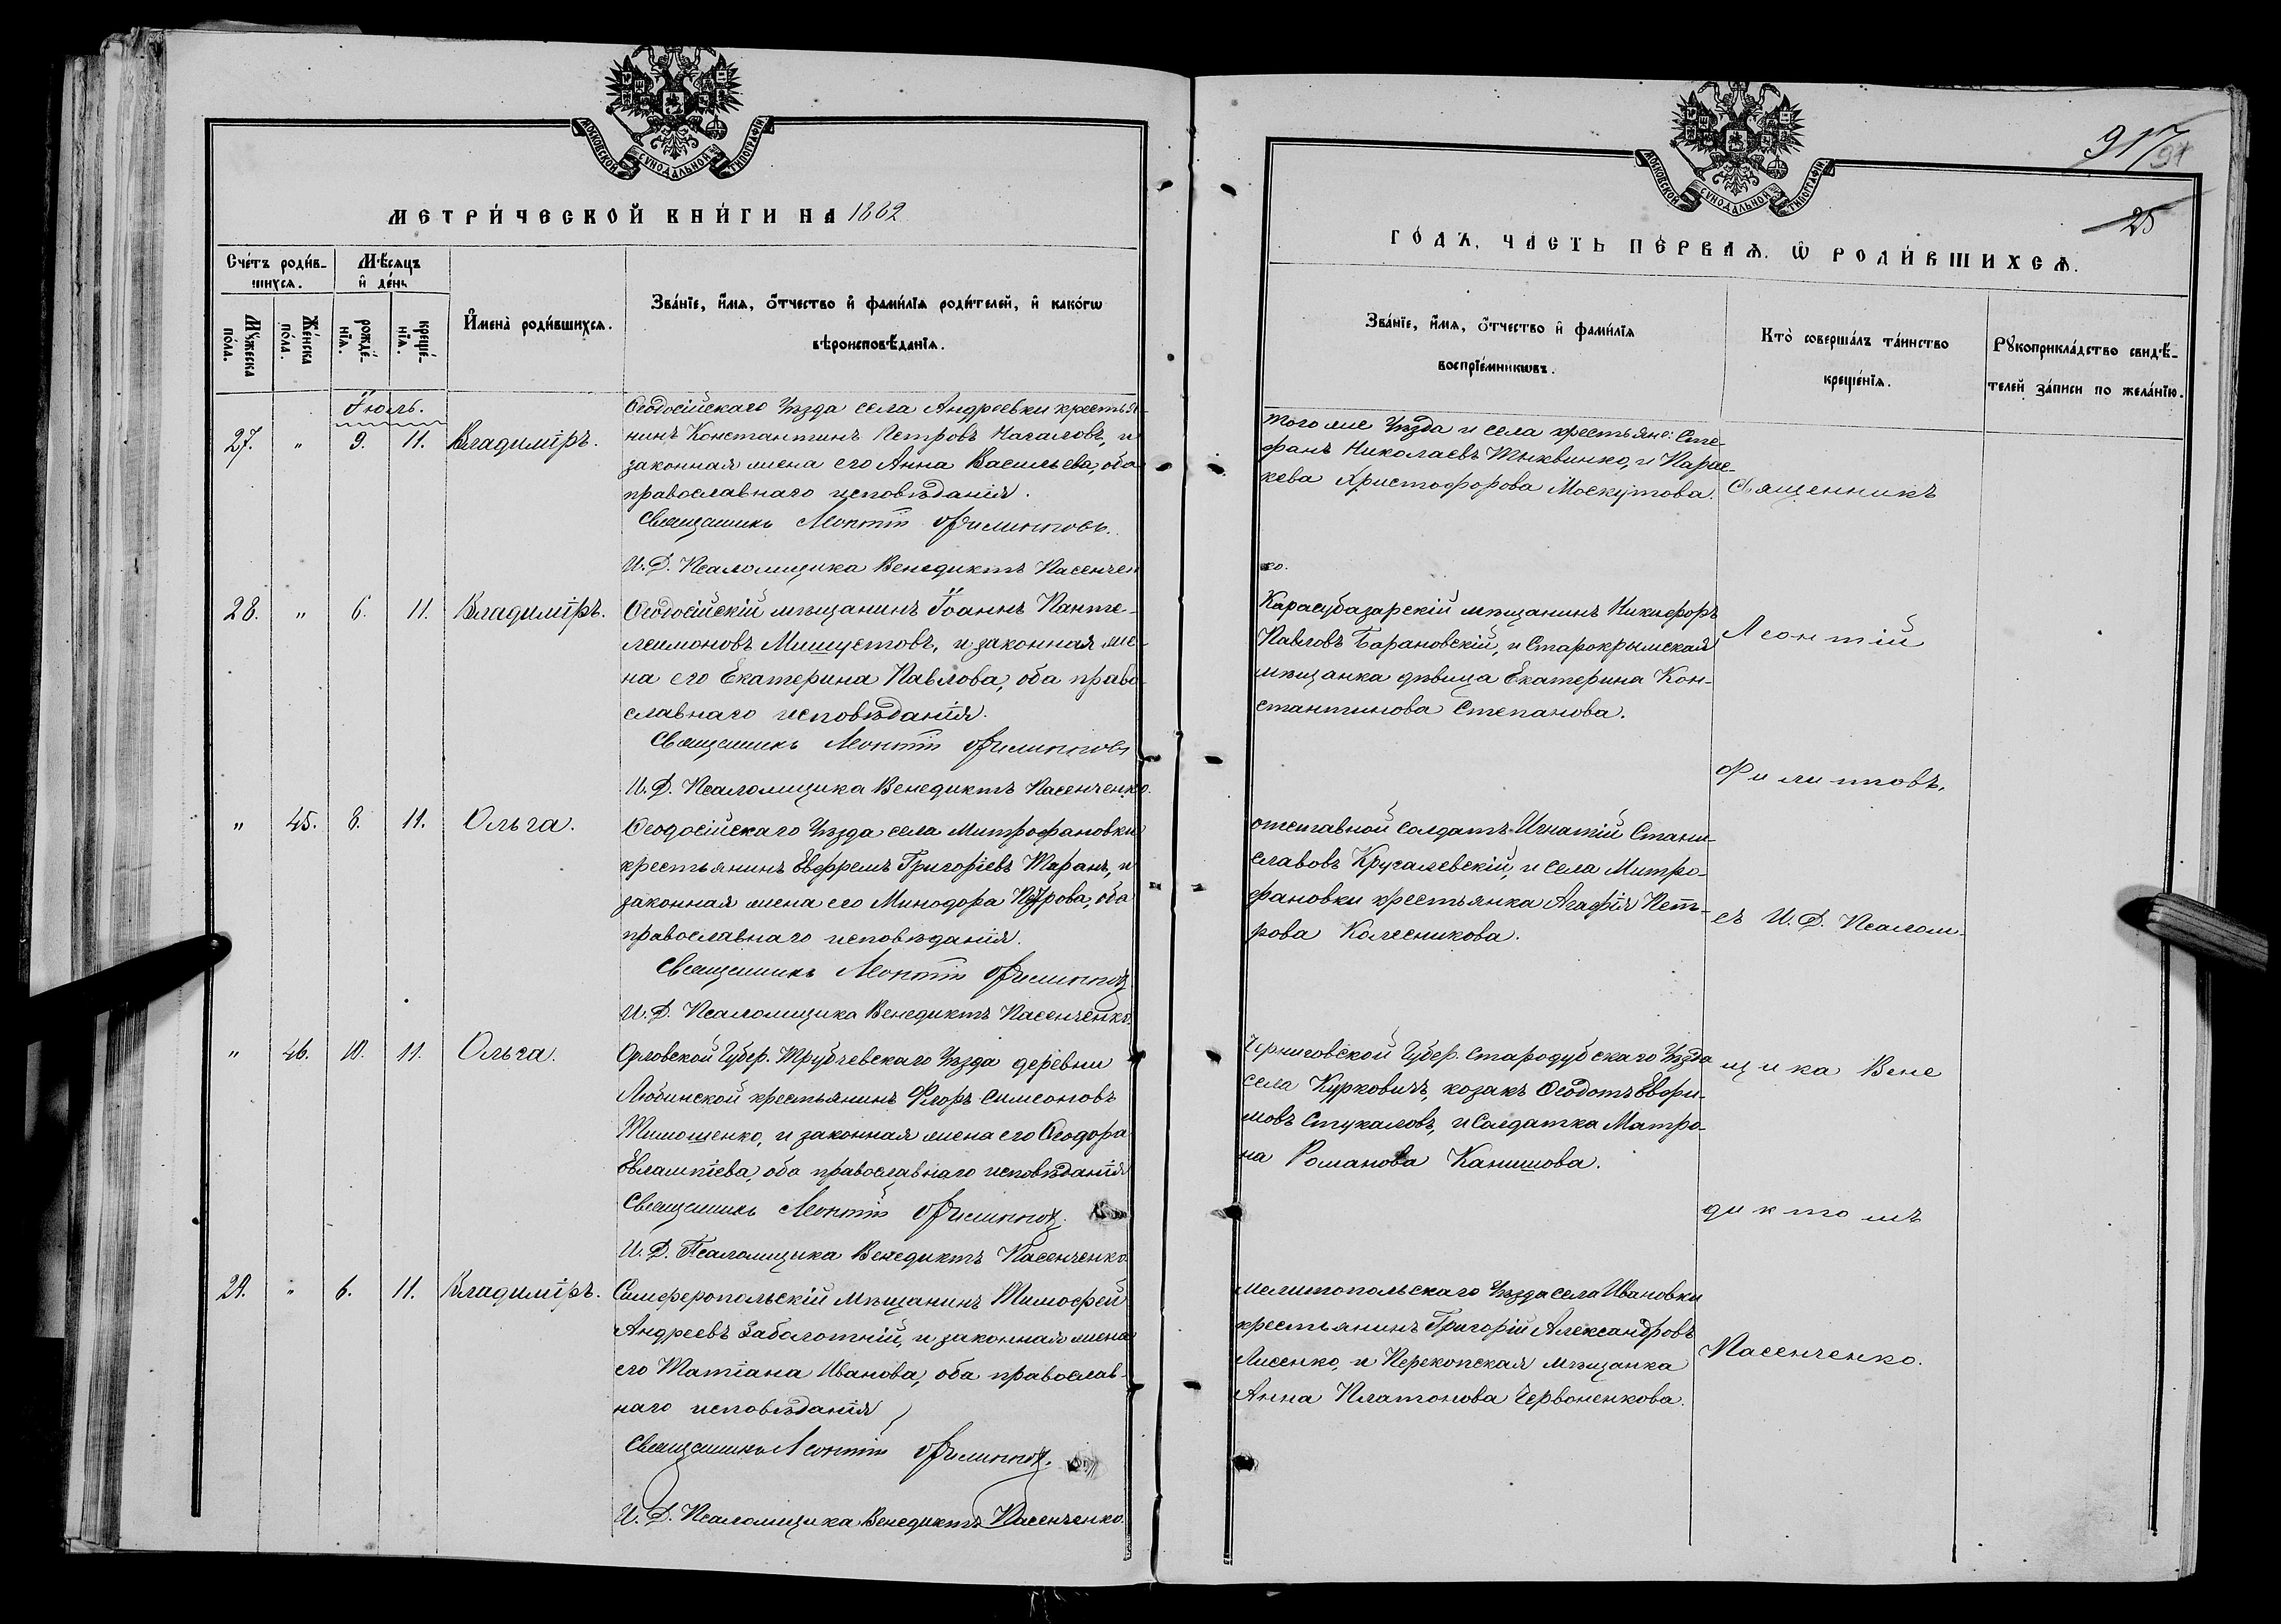 МОСКОВСКОЙ СУНОДАЛЬНОЙ ТИПОГРАФІИ
МЕТРИ́ЧЕСКОЙ КНИ́ГИ НА 1882
Сче́тъ роди́в-
шихся.
Мѣ́сяцъ
и҆ де́нь
Мꙋ́жеска
по́ла.
Же́нска
по́ла.
рожде́-
нїя.
креще́-
нїя.
И҆мена̀ роди́вшихся.
Зва́нїе, и҆́мя, ѻ҆́тчество и҆ фами́лїя роди́телей, и҆ како́гѡ
вѣроисповѣ́данїя.
Іюль.
27. " 9. 11. Владиміръ.
Ѳеодосійскаго Уѣзда села Андреевки крестья-
нинъ Константинъ Петровъ Началовъ, и
законная жена его Анна Васильева, оба
православнаго исповѣданія.
Священникъ Леонтій Филипповъ.
И. Д. Псаломщика Венедиктъ Пасенчен
28. " 6. 11. Владиміръ.
Ѳеодосійскій мѣщанинъ Іоаннъ Панте-
леимоновъ Мишустовъ, и законная же-
на его Екатерина Павлова, оба право-
славнаго исповѣданія.
Священникъ Леонтій Филипповъ
И. Д. Псаломщика Венедиктъ Пасенченко.
" 45. 8. 11. Ольга.
Ѳеодосійскаго Уѣзда села Митрофановки
крестьянинъ Евфремъ Григоріевъ Таранъ, и
законная жена его Минодора Петрова, оба
православнаго исповѣданія.
Священникъ Леонтій Филипповъ
И. Д. Псаломщика Венедиктъ Пасенченко.
" 46. 10. 11. Ольга.
Орловской Губер. Трубчевскаго Уѣзда деревни
Любинской крестьянинъ Флоръ Симеоновъ
Тимошенко, и законная жена его Ѳеодора
Евлампіева, оба православнаго исповѣданія
Священникъ Леонтій Филипповъ.
И. Д. Псаломщика Венедиктъ Пасенченко
29. " 6. 11. Владиміръ.
Симферопольскій мѣщанинъ Тимофей
Андреевъ Заболотній, и законная жена
его Татіана Иванова, оба православ-
наго исповѣданія
Священникъ Леонтій Филипповъ.
И. Д. Псаломщика Венедиктъ Пасенченко.
917
91
25
МОСКОВСКОЙ СУНОДАЛЬНОЙ ТИПОГРАФІИ
ГО́ДЪ, ЧА́СТЬ ПЕ́РВАЯ, Ѡ҆ РОДИ́ВШИХСЯ.
Зва́нїе, и҆́мя, ѻ҆́тчество и҆ фами́лїя
воспрїе́мникѡвъ.
Кто̀ соверша́лъ та́инство
креще́нїя.
Рꙋкоприкла́дство свидѣ́-
телей за́писи по жела́нїю.
того же Уѣзда и села крестьяне: Сте-
фанъ Николаевъ Тыквинко, и Парас-
кева Христофорова Москутова.
ко.
Карасубазарскій мѣщанинъ Никифоръ
Павловъ Барановскій, и Старокрымская
мѣщанка дѣвица Екатерина Кон-
стантинова Степанова.
отставной солдатъ Игнатій Стани-
славовъ Кругалевскій, и села Митро-
фановки крестьянка Агафія Пет-
рова Колесникова.
Черниговской Губер. Стародубскаго Уѣзда
села Курковичъ, козакъ Ѳеодотъ Евфи-
мовъ Стукаловъ, и Солдатка Матро-
на Романова Канишова.
Мелитопольскаго Уѣзда села Ивановки
крестьянинъ Григорій Александровъ
Лисенко, и Перекопская мѣщанка
Анна Платонова Червоненкова.
Священникъ
Леонтій
Филиповъ,
съ И. Д. Псалом-
щика Вене
диктомъ
Пасенченко.